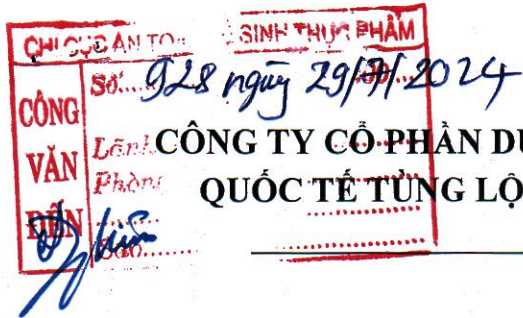 CHI CỤC AN TO SINH THỰC PHẨM
CÔNG
VĂN
ĐẾN
Số: 928 ngày 29/7/2024
Lãnh
Phòng
CÔNG TY CỔ PHẦN DU
QUỐC TẾ TÙNG LỘ